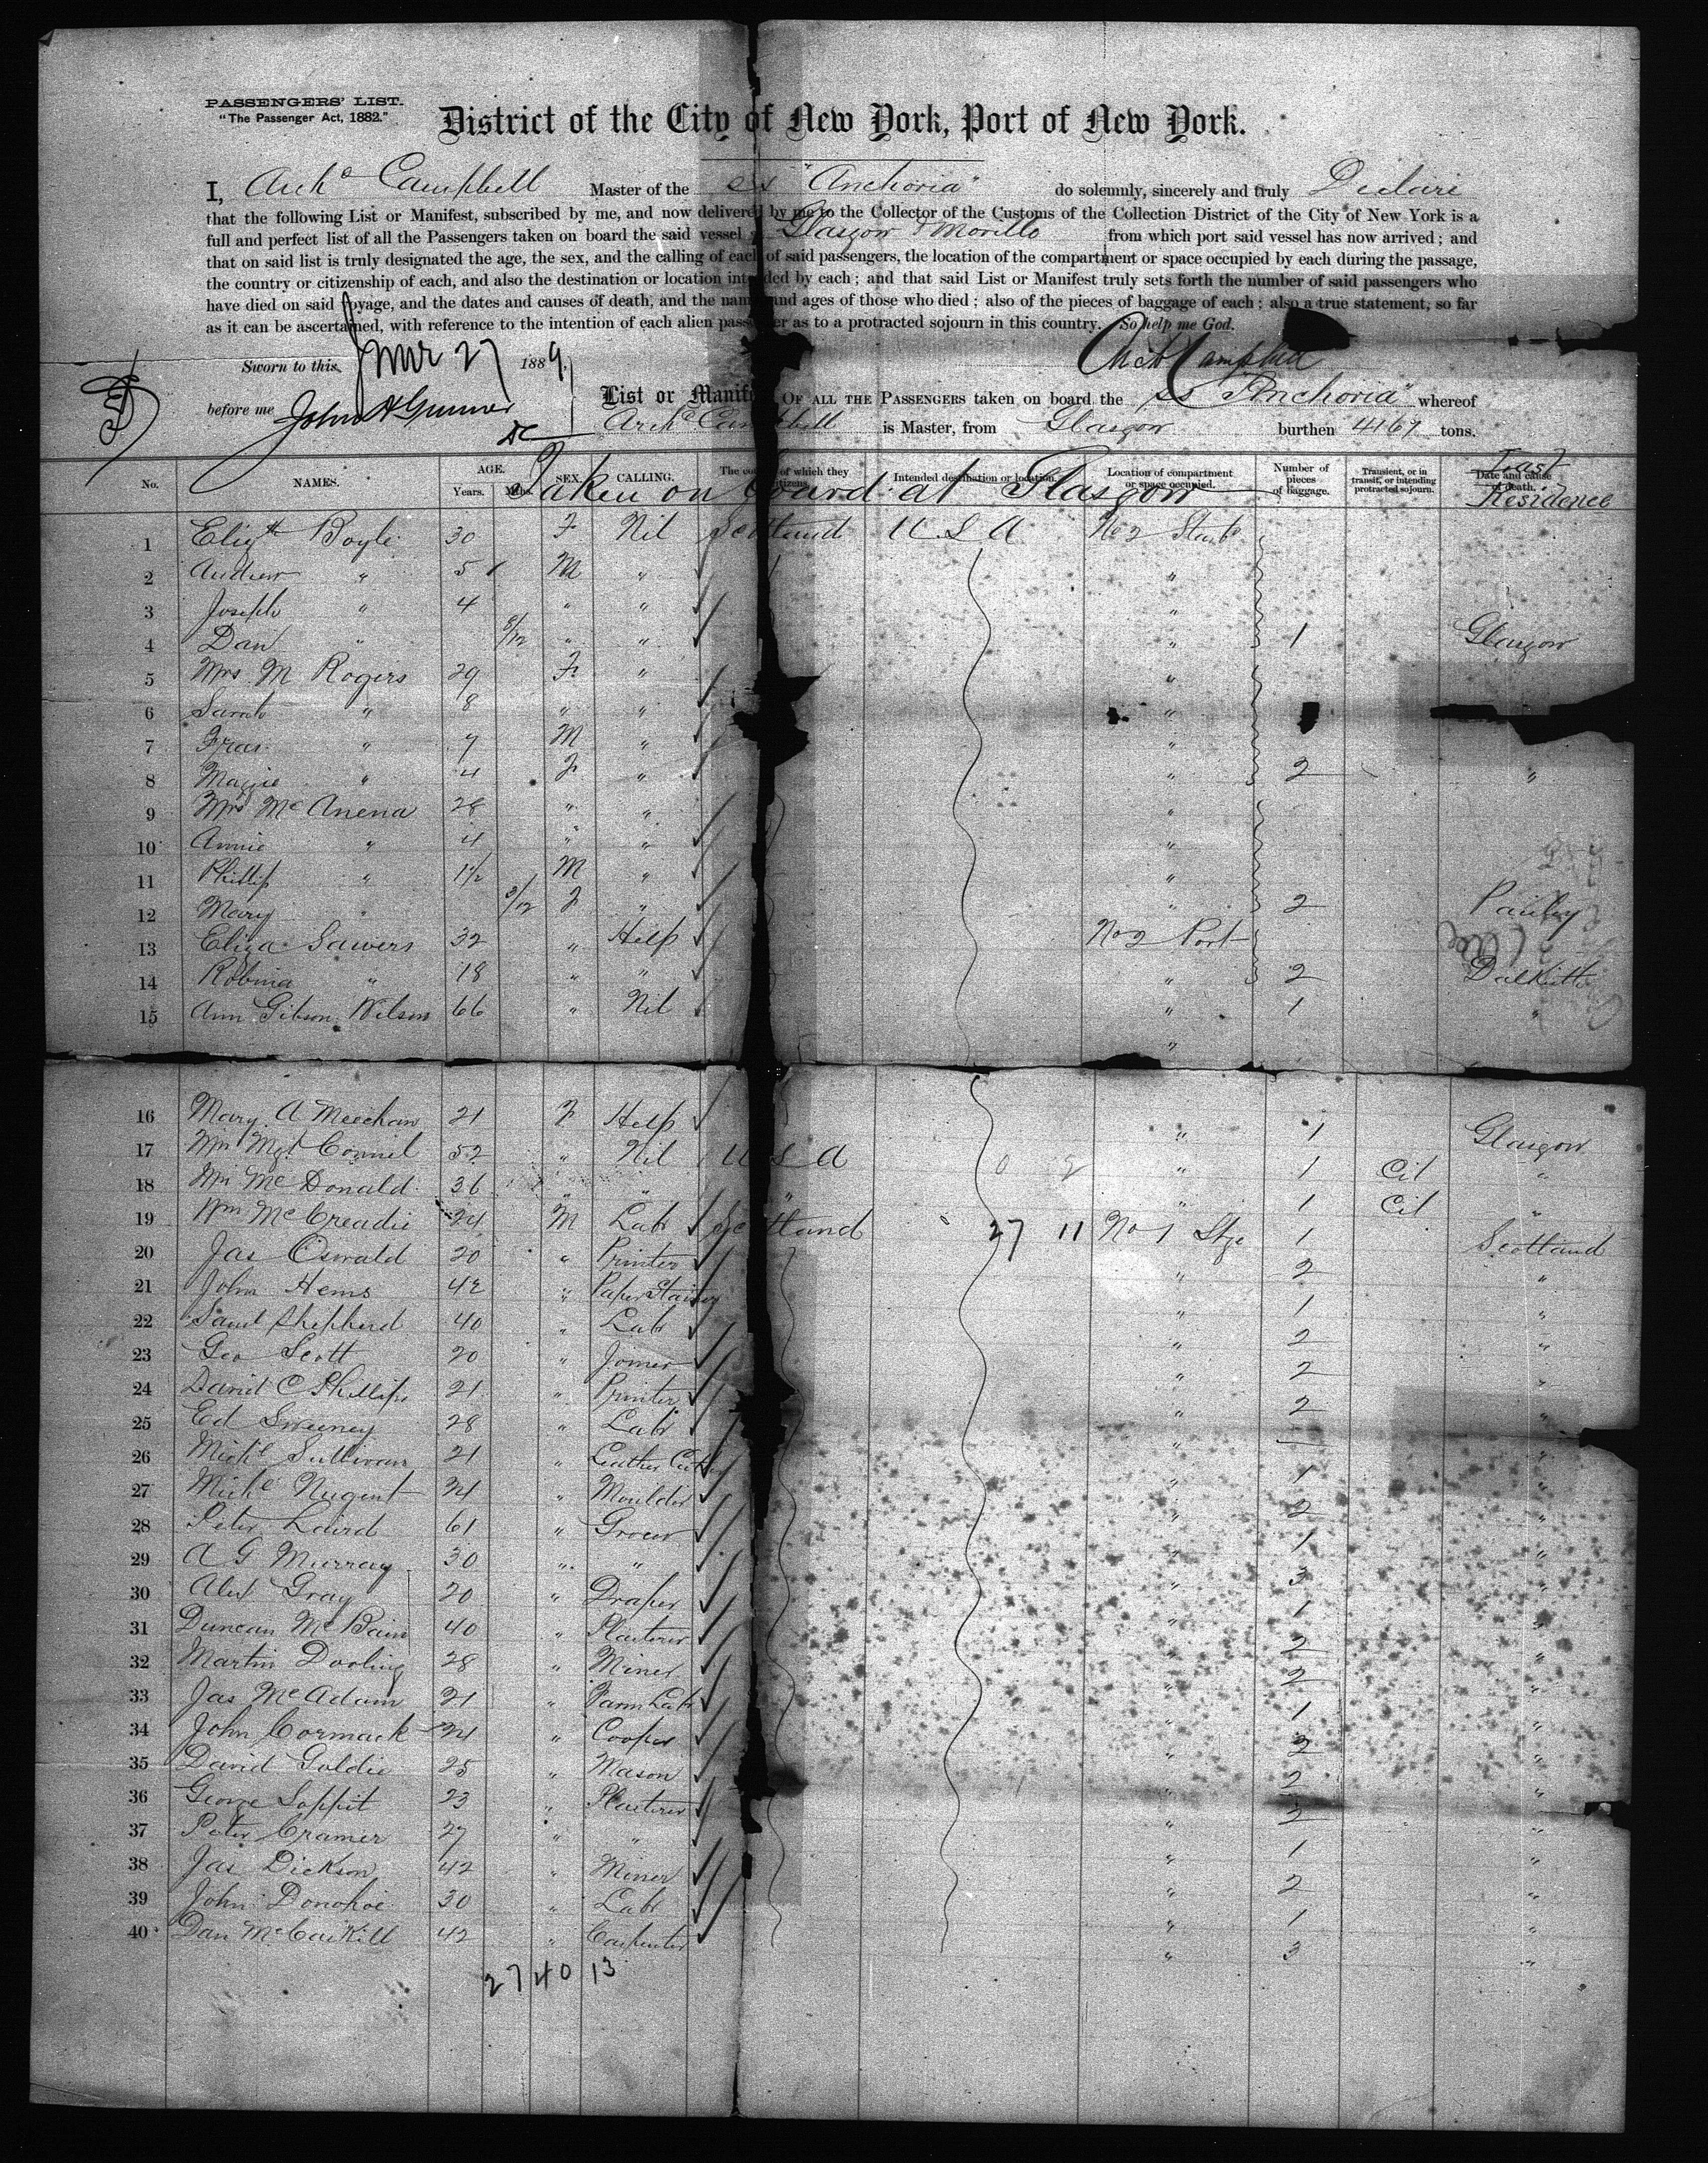 PASSENGERS' LIST.
"The Passenger Act, 1882."
District of the City of New York, Port of New York.
I, Archd Campbell Master of the SS "Anchoria" do solemnly, sincerely and truly Declare
that the following List or Manifest, subscribed by me, and now delivered by me to the Collector of the Customs of the Collection District of the City of New York is a
full and perfect list of all the Passengers taken on board the said vessel Glasgow & Moville from which port said vessel has now arrived; and
that on said list is truly designated the age, the sex, and the calling of each of said passengers, the location of the compartment or space occupied by each during the passage,
the country or citizenship of each, and also the destination or location intended by each; and that said List or Manifest truly sets forth the number of said passengers who
have died on said voyage, and the dates and causes of death, and the names and ages of those who died; also of the pieces of baggage of each; also a true statement, so far
as it can be ascertained, with reference to the intention of each alien passenger as to a protracted sojourn in this country. So help me God.
Sworn to this 27 1889. Archd Campbell
before me John A Gunner
List or Manifest OF ALL THE PASSENGERS taken on board the SS "Anchoria" whereof
Archd Campbell is Master, from Glasgow burthen 4167 tons.
No. NAMES. AGE. Years. Mths. SEX. CALLING. The country of which they are citizens. Intended destination or location. Location of compartment or space occupied. Number of pieces of baggage. Transient, or in transit, or intending protracted sojourn. Date and cause of death. Last Residence
Taken on board at Glasgow
1 Elizth Boyle 30 F Nil Scotland U S A No 2 Starb
2 Andrew " 5 M " "
3 Joseph " 4 " " "
4 Dan " 8/12 " " " 1 Glasgow
5 Mrs M Rogers 29 F " "
6 Sarah " 8 " " "
7 Fras " 7 M " "
8 Maggie " 4 F " " 2 "
9 Mrs McAnena 28 " " "
10 Annie " 4 " " "
11 Phillip " 1½ M " "
12 Mary " 3/12 F " " 2 Paisley
13 Eliza Sawers 32 " Help No 2 Port
14 Robina " 18 " " " 2 Dalkeith
15 Ann Gibson Wilson 66 " Nil " 1 "
"
16 Mary A Meechan 21 F Help " 1 Glasgow
17 Mrs Mgt Connil 52 " Nil U S A " 1 Cit "
18 Mrs McDonald 36 " " " " 1 Cit "
19 Wm McCreadie 24 M Labr Scotland 27 11 No 1 Stge 1 Scotland
20 Jas Oswald 20 " Printer " 2 "
21 John Hems 42 " Paper Stainer " 1 "
22 Saml Shepherd 40 " Labr " 2 "
23 Geo Scott 20 " Joiner " 2 "
24 David C Phillips 21 " Printer " 2 "
25 Ed Sweeney 28 " Labr " — "
26 Michl Sullivan 21 " Leather Cutr " 1 "
27 Michl Nugent 34 " Moulder " 2 "
28 Peter Laird 61 " Grocer " 1 "
29 A G Murray 30 " " " 3 "
30 Alex Gray 20 " Draper " 1 "
31 Duncan McBain 40 " Plasterer " 2 "
32 Martin Dooling 28 " Miner " 2 "
33 Jas McAdam 21 " Farm Labr " 1 "
34 John Cormack 24 " Cooper " 2 "
35 David Goldie 25 " Mason " 2 "
36 George Soppit 23 " Plasterer " 2 "
37 Peter Cramer 27 " " " 1 "
38 Jas Dickson 42 " Miner " 2 "
39 John Donohoe 30 " Labr " 1 "
40 Dan McCaskill 42 " Carpenter " 3 "
27 40 13